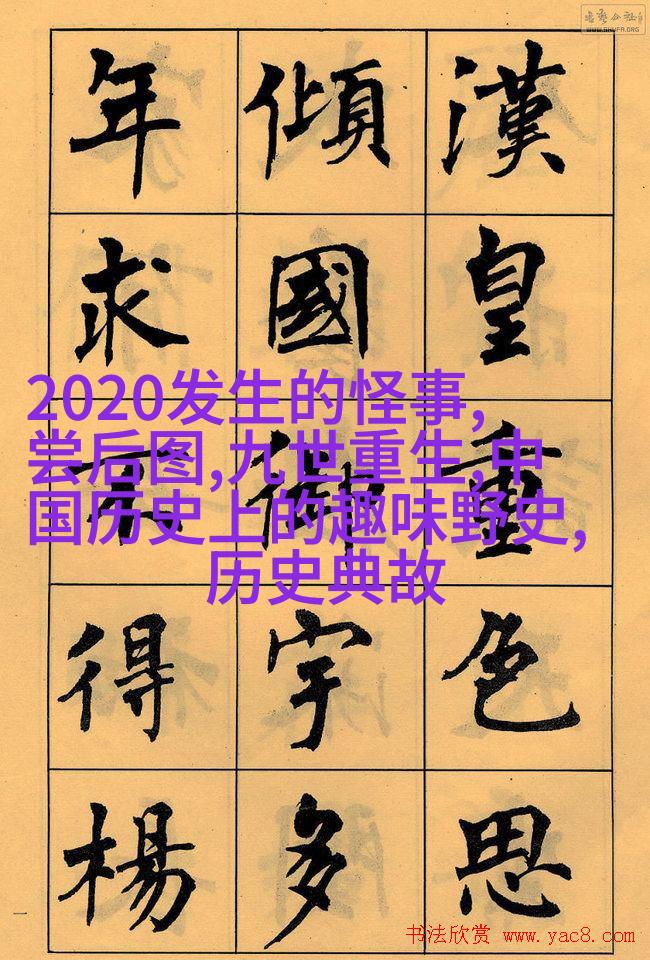 漢皇重色思
傾國御宇多
年求不得楊
2020发生的怪事,
尝后图,九世重生,中
国历史上的趣味野史,
历史典故
一
WWW.SHUFA.ORG
书法欣赏 www.yac8.com